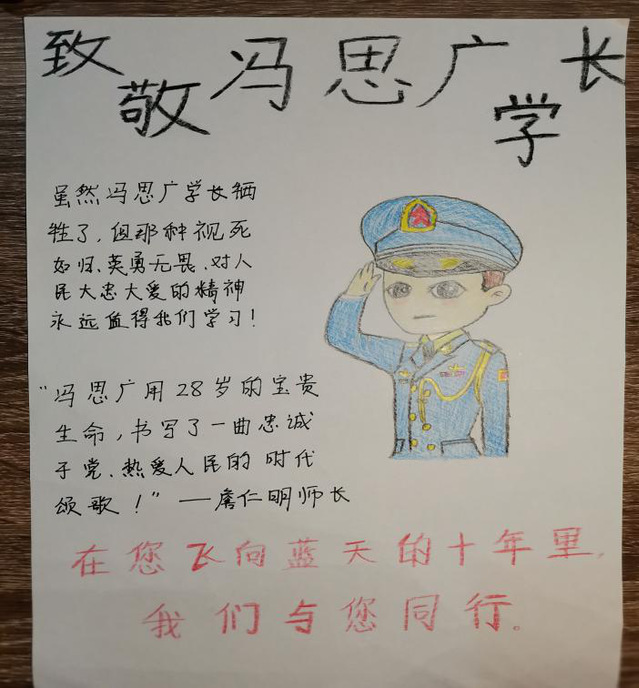 致敬冯思广学长
虽然冯思广学长牺
牲了,但那种视死
如归、英勇无畏、对人
民大忠大爱的精神
永远值得我们学习!
“冯思广用28岁的宝贵
生命,书写了一曲忠诚
于党、热爱人民的时代
颂歌!”——詹仁明师长
在您飞向蓝天的十年里,
我们与您同行。